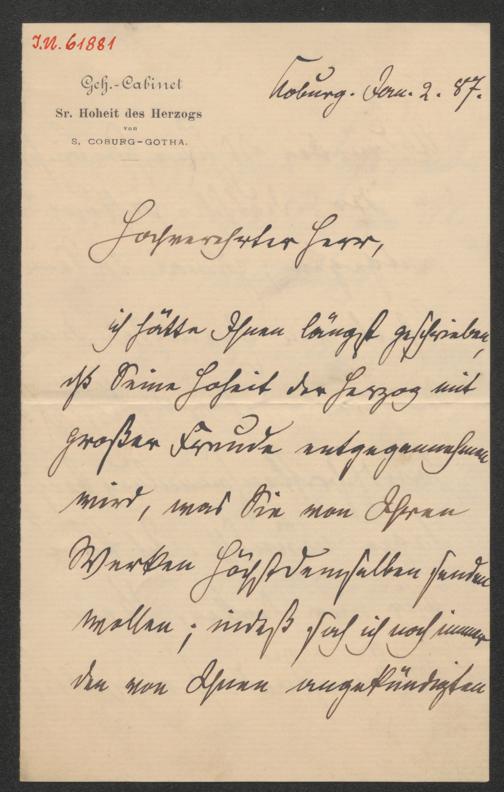 I.N. 61881
Geh.-Cabinet
Sr. Hoheit des Herzogs
von
S. COBURG-GOTHA.
Koburg. Jan. 2. 87.
Hochverehrter Herr,
ich hätte Ihnen längst geschrieben,
daß Seine Hoheit der Herzog mit
großer Freude entgegennehmen
wird, was Sie von Ihren
Werken Höchstdemselben senden
wollen; indeß sah ich noch immer
den von Ihnen angekündigten